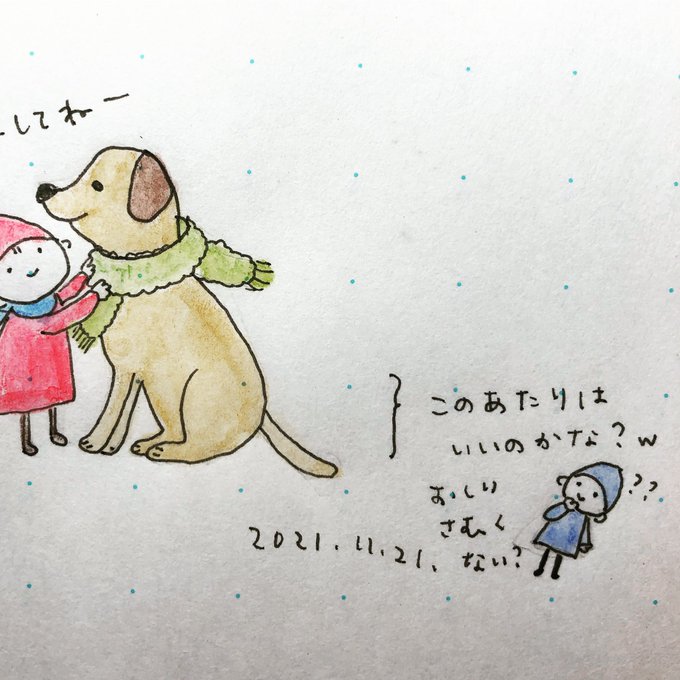 してねー
このあたりは
いいのかな?w
おしり
さむく
ない?
??
2021.11.21.